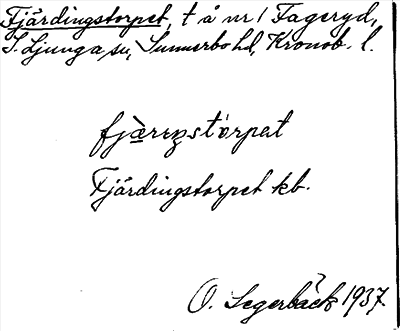 Fjärdingstorpet, t å nr 1 Fageryd,
S. Ljunga sn, Sunnerbo hd, Kronob. l.
fjæ̀rɪŋstòrpet
Fjärdingstorpet kb.
O. Segerbäck 1937